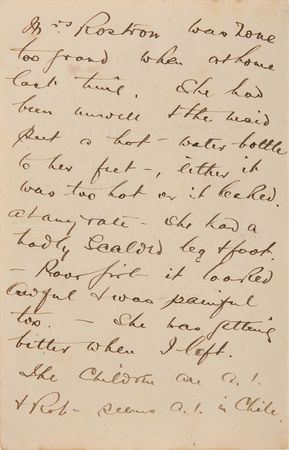 Mrs Rostron was none
too grand when at home
last time. She had
been unwell & the maid
put a hot-water bottle
to her feet -, either it
was too hot or it leaked.
at any rate - she had a
badly scalded leg & foot.
- Poor girl - it looked
awful & was painful
too. - She was getting
better when I left.
The Children are A.1.
& Rob - seems A.1. in Chile.